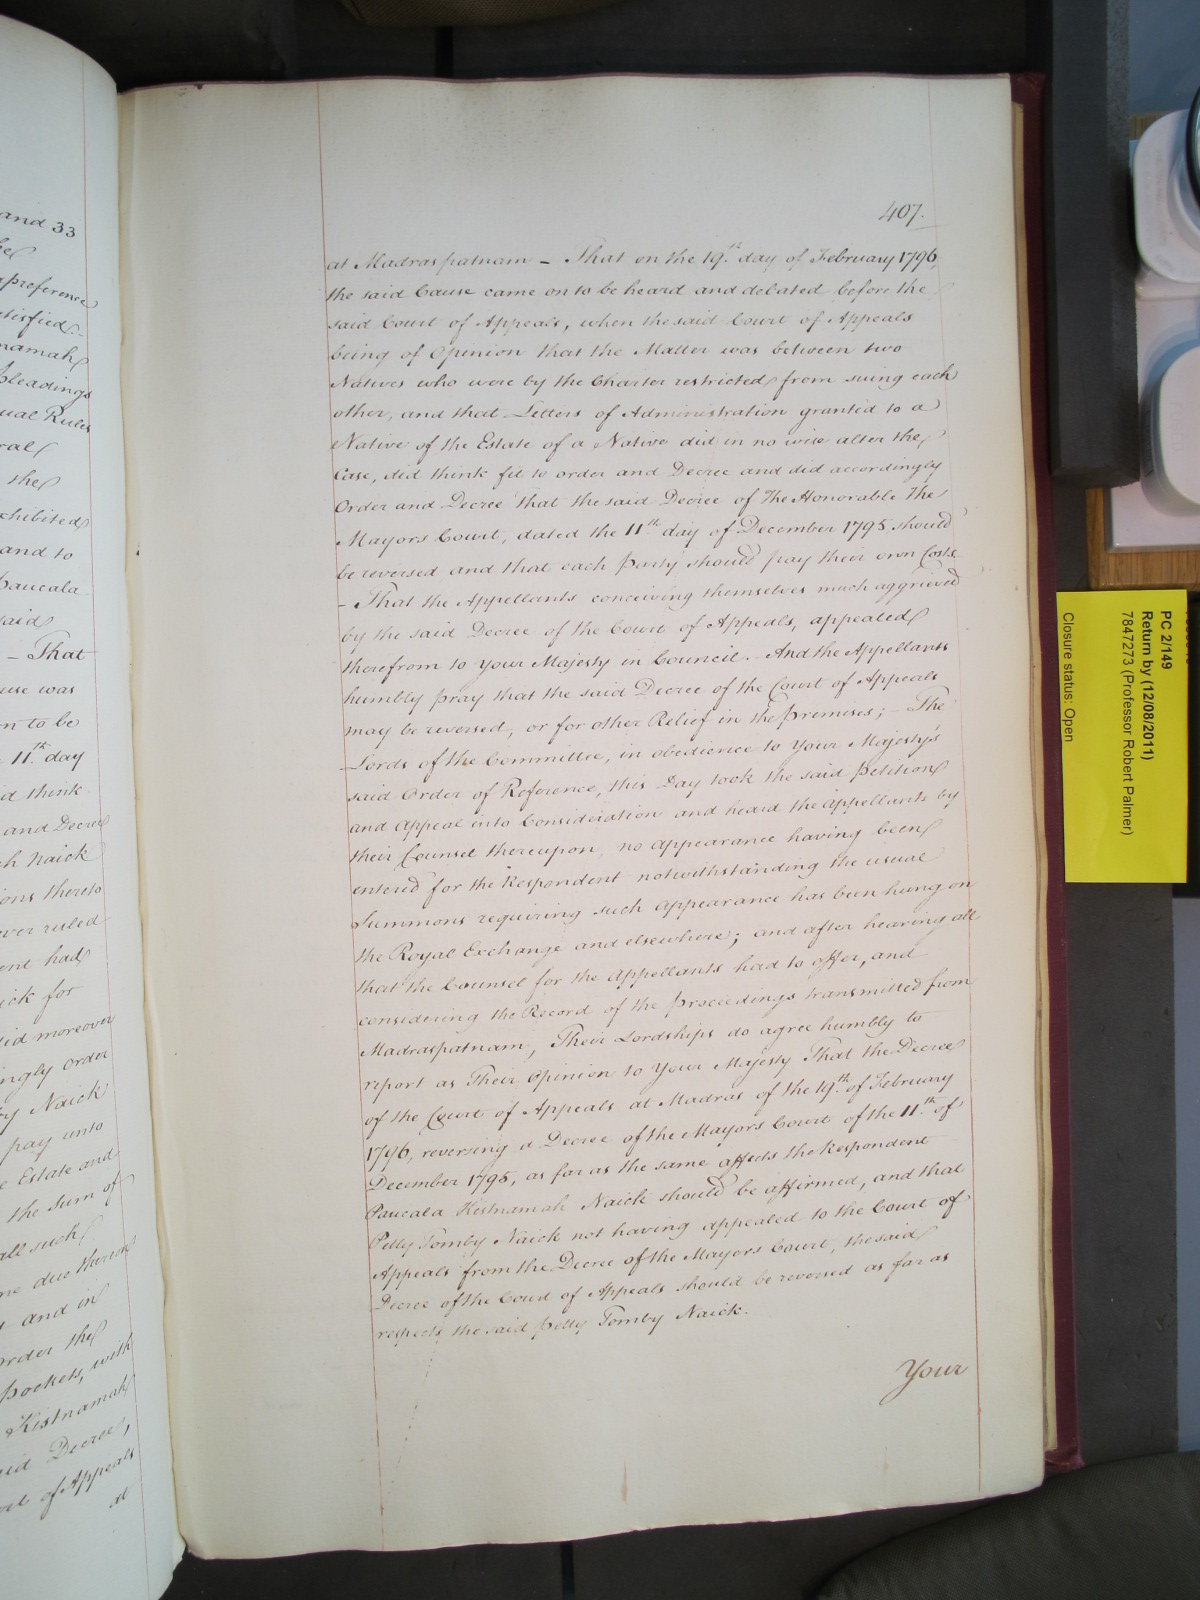 and 33
preference
pleadings
ual Rules
ral
the
and to
Paucala
said
- That
use was
n to be
11th. day
id think
and Decree
h Naick
ons thereto
ver ruled
ent had
ick for
id moreover
ingly order
y Naick
pay unto
Estate and
the Sum of
all such
and in
order the
Pockets, with
Kistnamah
Decree,
of Appeals
at
407.
at Madraspatnam – That on the 19th. day of February 1796,
the said Cause came on to be heard and debated before the
said Court of Appeals, when the said Court of Appeals
being of Opinion that the Matter was between two
Natives who were by the Charter restricted from suing each
other, and that Letters of Administration granted to a
Native of the Estate of a Native did in no wise alter the
Case, did think fit to order and Decree and did accordingly
Order and Decree that the said Decree of The Honorable The
Mayors Court, dated the 11th. day of December 1795, should
be reversed and that each Party should pay their own Costs.
– That the Appellants conceiving themselves much aggrieved
by the said Decree of the Court of Appeals, appealed
therefrom to Your Majesty in Council. And the Appellants
humbly pray that the said Decree of the Court of Appeals
may be reversed, or for other Relief in the premises; – The
Lords of the Committee, in obedience to Your Majesty's
said Order of Reference, this Day took the said Petition
and Appeal into Consideration and heard the Appellants by
their Counsel thereupon, no Appearance having been
entered for the Respondent notwithstanding the usual
Summons requiring such Appearance has been hung on
the Royal Exchange and elsewhere; and after hearing all
that the Counsel for the Appellants had to offer, and
considering the Record of the Proceedings transmitted from
Madraspatnam, Their Lordships do agree humbly to
report as Their Opinion to Your Majesty That the Decree
of the Court of Appeals at Madras of the 19th. of February
1796, reversing a Decree of the Mayors Court of the 11th. of
December 1795, as far as the same affects the Respondent
Paucala Kistnamah Naick should be affirmed, and that
Petty Tomby Naick not having appealed to the Court of
Appeals from the Decree of the Mayors Court, the said
Decree of the Court of Appeals should be reversed as far as
respects the said Petty Tomby Naick.
Your
PC 2/149
Return by (12/08/2011)
7847273 (Professor Robert Palmer)
Closure status: Open